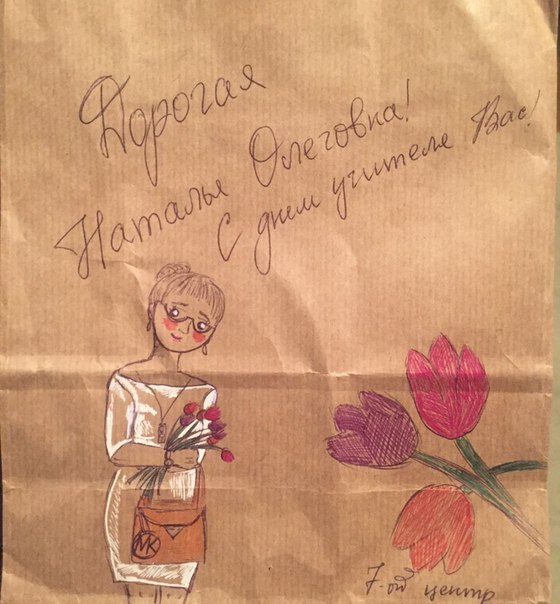 Дорогая
Наталья Олеговна!
С днём учителя Вас!
МК
7-ой центр